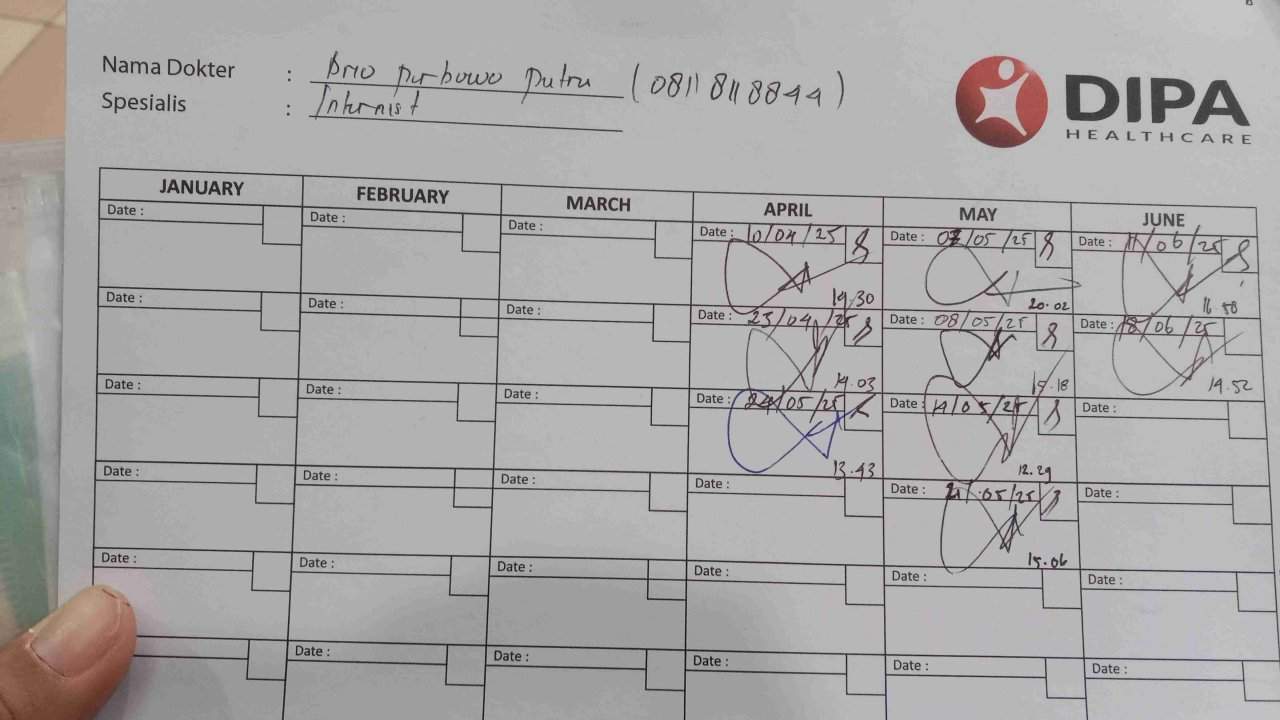 Nama Dokter : Brio Purbowo Putra (0811 811 8844)
Spesialis : Internist
DIPA
HEALTHCARE
JANUARY FEBRUARY MARCH APRIL MAY JUNE
Date : Date : Date : Date : 10/04/25 Date : 07/05/25 Date : 11/06/25
19.30 20.02 16.58
Date : Date : Date : Date : 23/04/25 Date : 08/05/25 Date : 18/06/25
19.03 19.18 19.52
Date : Date : Date : Date : 24/05/25 Date : 14/05/25 Date :
13.43 12.29
Date : Date : Date : Date : Date : 21/05/25 Date :
15.06
Date : Date : Date : Date : Date : Date :
Date : Date : Date : Date : Date :